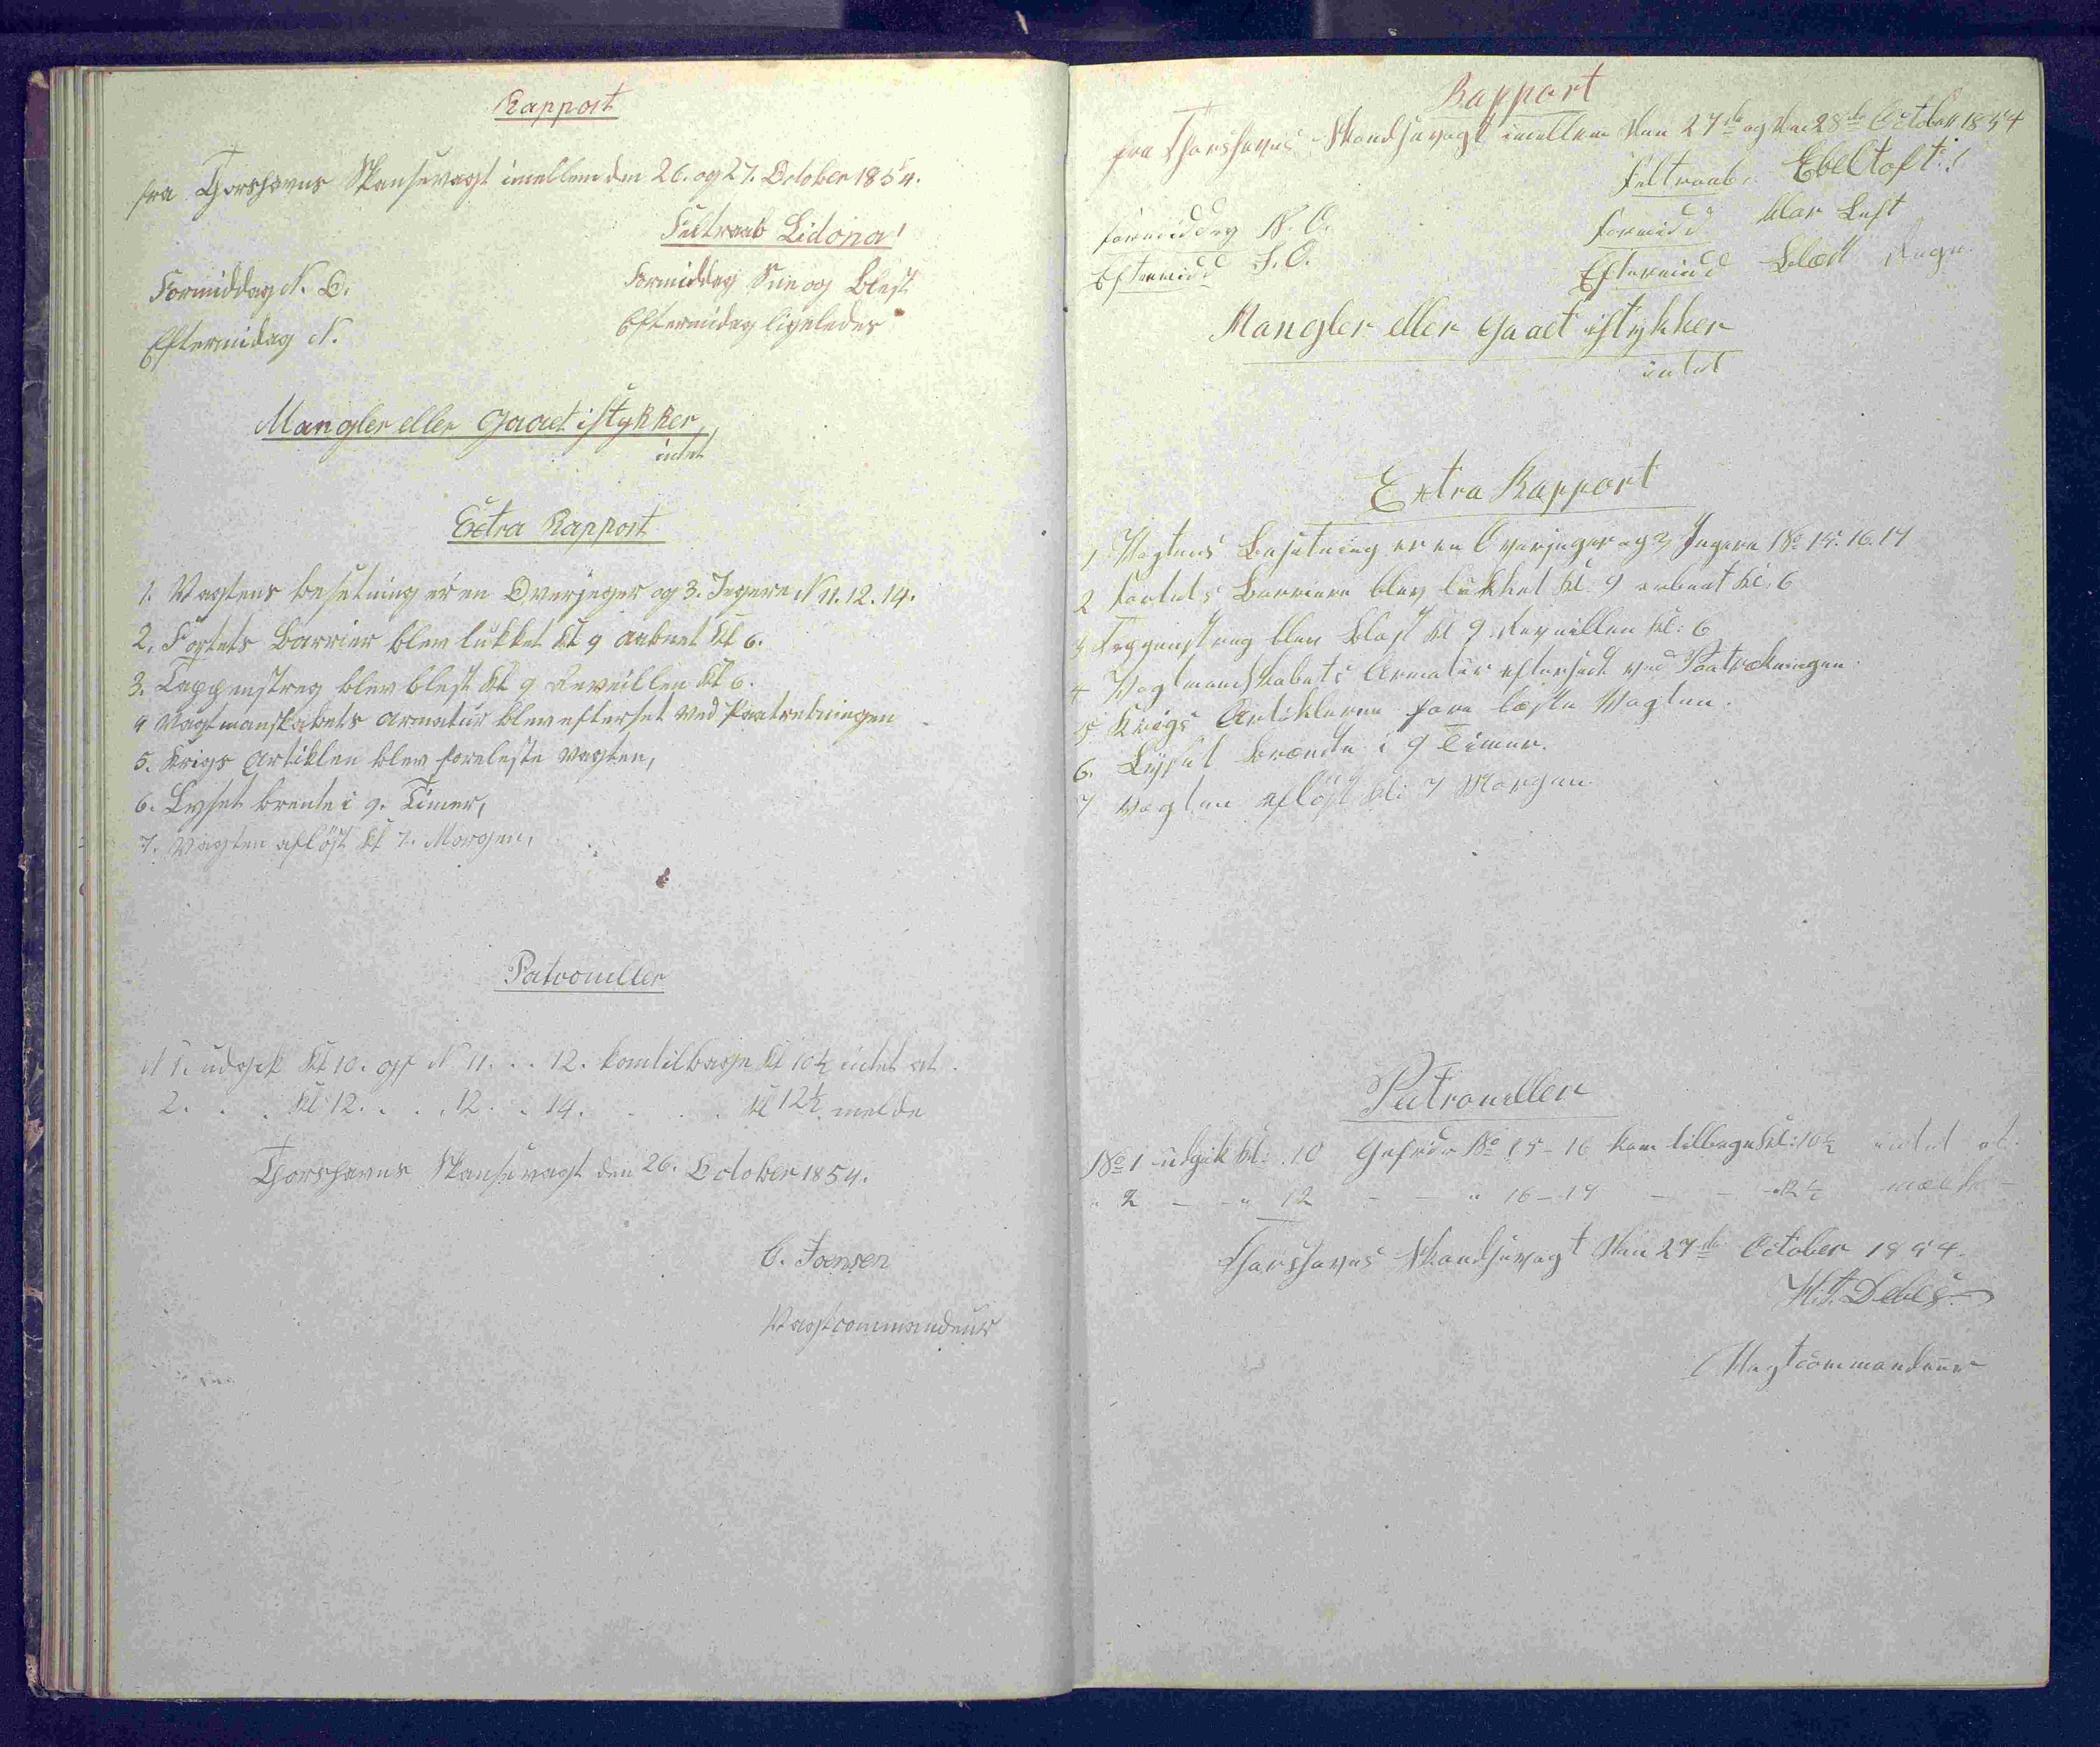 Rapport
fra Thorshavns Skansevagt imellem den 26. og 27. October 1854.
Feltraab Lidona!
Formiddag N. O. Formiddag Sne og Blest
Eftermidag N. Eftermidag ligeledes
Mangler eller gaaet istykker,
intet
Extra Rapport
1. Vagtens besetning er en Overjeger og 3. Jegere N 11. 12. 14.
2. Fortets Barrier blev lukket Kl 9 aabnet Kl 6.
3. Tappenstreg blev blest Kl 9 Reveillen Kl 6.
4 Vagtmanskabets armatur blev efterset ved Paatrekningen
5. Krigs Artiklen blev foreleste vagten,
6. Lyset brente i 9. Timer,
7. Vagten afløst Kl 7. Morgen,
Patrouiller
N 1. udgik Kl 10. gf N 11. . . 12. kom tilbage Kl 10½ intet at
2. . . Kl 12. . . . 12. . 14. . . . . Kl 12½ melde
Thorshavns Skansevagt den 26. October 1854.
C. Joensen
Vagtcommandeur
Rapport
fra Thorshavns Skandsevagt imellem den 27de og den 28de October 1854
Feltraab. Ebeltoft!
Formiddag N. O. Formidd klar Luft
Eftermidd S. O. Eftermidd Blæst Regn
Mangler eller Gaaet istykker
intet
Extra Rapport
1 Vagtens Besætning er en Overjæger og 3 Jægere No 15. 16. 17
2 Fortets Barriere blev lukket Kl. 9 aabnet Kl. 6
3 Tappenstreg blev blæst Kl 9 Reveillen Kl: 6
4 Vagtmandskabets Armatur efterseet ved Paatrækningen.
5 Krigs Artiklerne fore læste Vagten.
6. Lyset brændte i 9 Timer.
7 Vagten afløst Kl: 7 Morgen.
Patrouiller
No 1 udgik Kl: 10 Gefrdr No 15 - 16 kom tilbage Kl: 10½ intet at
" 2 - - " 12 - - " 16 - 17 - - " 12½ mælde -
Thorshavns Skandsevagt den 27de October 1854.
Debes
Vagtcommandeur